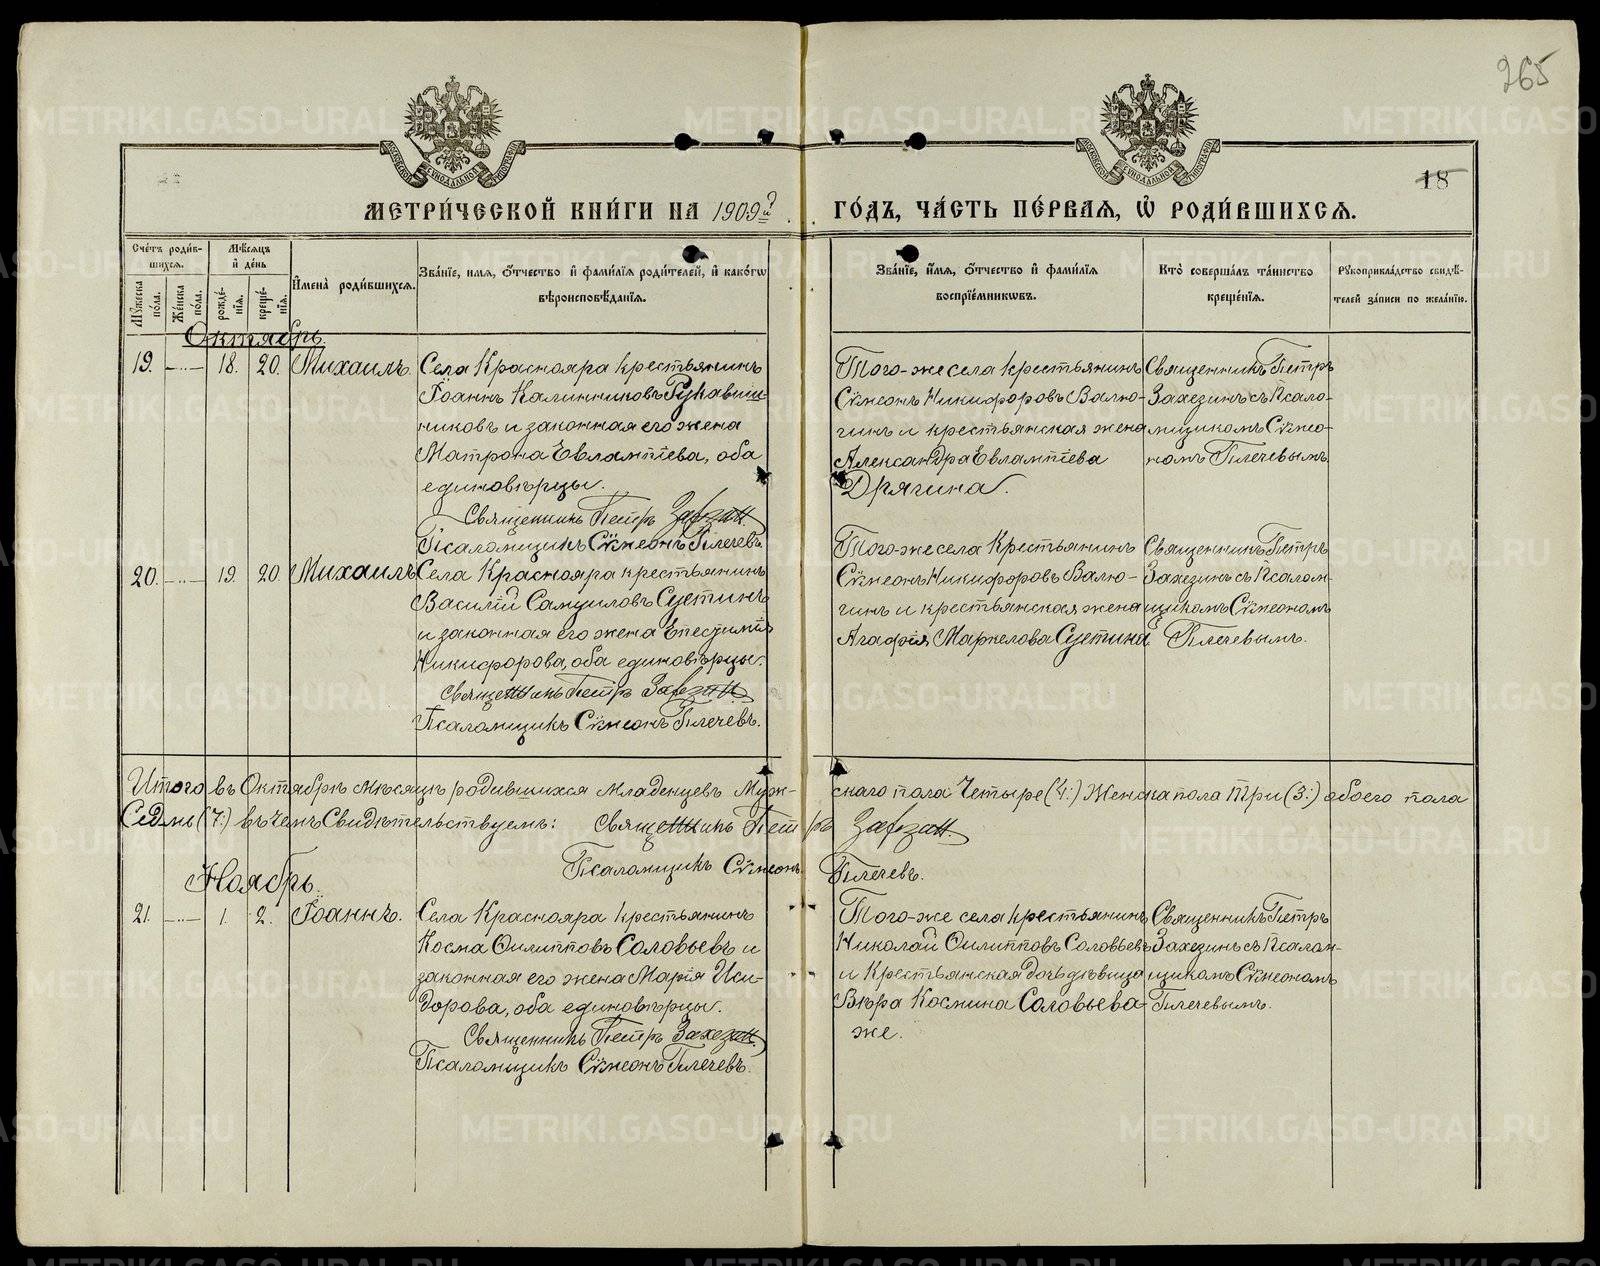 265
18
МЕТРИ́ЧЕСКОЙ КНИ́ГИ НА 1909й
ГО́ДЪ, ЧА́СТЬ ПЕ́РВАЯ, Ѡ҆ РОДИ́ВШИХСЯ.
Сче́тъ роди́в-
шихся.
Му́жеска по́ла.
Же́нска по́ла.
Мѣ́сяцъ
и҆ де́нь
рожде́-нїя.
креще́-нїя.
И҆мена̀ роди́вшихся.
Зва́нїе, имя, о҆́тчество и҆ фами́лїя роди́телей, и҆ како́гѡ
вѣроисповѣ́данїя.
Зва́нїе, и҆́мя, о҆́тчество и҆ фами́лїя
воспрїе́мникѡвъ.
Кто̀ соверша́лъ та́инство
креще́нїя.
Рꙋкоприкла́дство свидѣ́-
телей за́писи по жела́нїю.
Октябрь.
19. — 18. 20. Михаилъ.
Села Краснояра крестьянинъ
Іоаннъ Калинниковъ Рукавиш-
никовъ и законная его жена
Матрона Евлампіева, оба
единовѣрцы.
Священникъ Петръ Захезин
Псаломщикъ Сѵмеонъ Плечевъ.
Того-же села крестьянинъ
Сѵмеонъ Никифоровъ Валю-
гинъ и крестьянская жена
Александра Евлампіева
Дрягина.
Священникъ Петръ
Захезинъ съ Псало-
мщикомъ Сѵмео-
номъ Плечевымъ.
20. — 19. 20. Михаилъ
Села Краснояра крестьянинъ
Василій Самуиловъ Суетинъ
и законная его жена Епестимія
Никифорова, оба единовѣрцы.
Священникъ Петръ Захезин
Псаломщикъ Сѵмеонъ Плечевъ.
Того-же села Крестьянинъ
Сѵмеонъ Никифоровъ Валю-
гинъ и крестьянская жена
Агафія Маркелова Суетина
Священникъ Петръ
Захезинъ съ Псалом-
щикомъ Сѵмеономъ
Плечевымъ.
Итого въ Октябрѣ мѣсяцѣ родившихся младенцевъ Муж-
скаго пола Четыре (4:) Женска пола Три (3:) обоего пола
Седмь (7:) въ чемъ Свидѣтельствуемъ: Священникъ Петръ Захезин
Псаломщикъ Сѵмеонъ Плечевъ.
Ноябрь.
21. — 1. 2. Іоаннъ.
Села Краснояра крестьянинъ
Косма Филипповъ Соловьевъ и
законная его жена Марія Иси-
дорова, оба единовѣрцы.
Священникъ Петръ Захезин
Псаломщикъ Сѵмеонъ Плечевъ.
Того-же села крестьянинъ
Николай Филипповъ Соловьевъ
и Крестьянская дочь дѣвица
Вѣра Космина Соловьева-
же.
Священникъ Петръ
Захезинъ съ Псалом-
щикомъ Сѵмеономъ
Плечевымъ.
METRIKI.GASO-URAL.RU